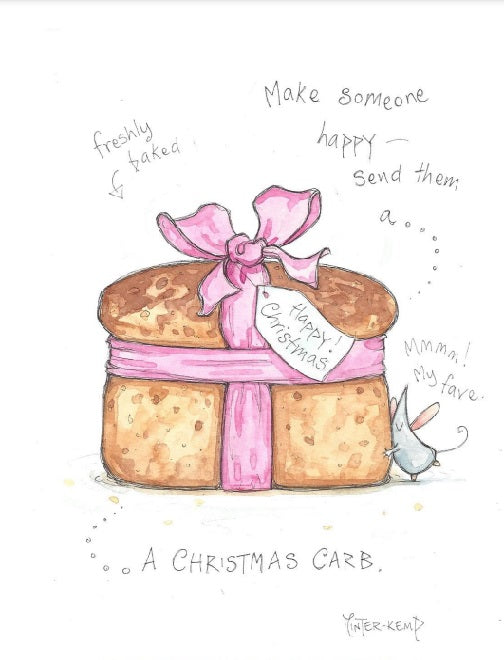 Make someone
happy —
send them
a....
freshly
baked
Happy!
Christmas
Mmmm!
My fave.
...A CHRISTMAS CARB.
YINTER-KEMP